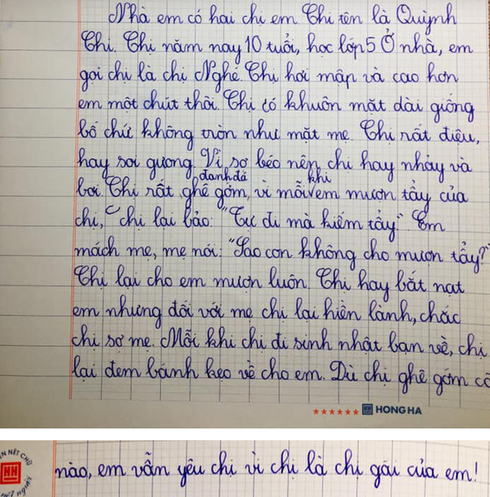 Nhà em có hai chị em. Chị tên là Quỳnh
Chi. Chị năm nay 10 tuổi, học lớp 5. Ở nhà, em
gọi chị là chị Nghé. Chị hơi mập và cao hơn
em một chút thôi. Chị có khuôn mặt dài giống
bố chứ không tròn như mặt mẹ. Chị rất điệu,
hay soi gương. Vì sợ béo nên chị hay nhảy và
đanh đá khi
bơi. Chị rất ghê gớm, vì mỗi em mượn tẩy của
chị, chị lại bảo: "Tự đi mà kiếm tẩy". Em
mách mẹ, mẹ nói: "Sao con không cho mượn tẩy?"
Chị lại cho em mượn luôn. Chị hay bắt nạt
em nhưng đối với mẹ chị lại hiền lành, chắc
chị sợ mẹ. Mỗi khi chị đi sinh nhật bạn về, chị
lại đem bánh kẹo về cho em. Dù chị ghê gớm cỡ
HONG HA
nào, em vẫn yêu chị vì chị là chị gái của em!